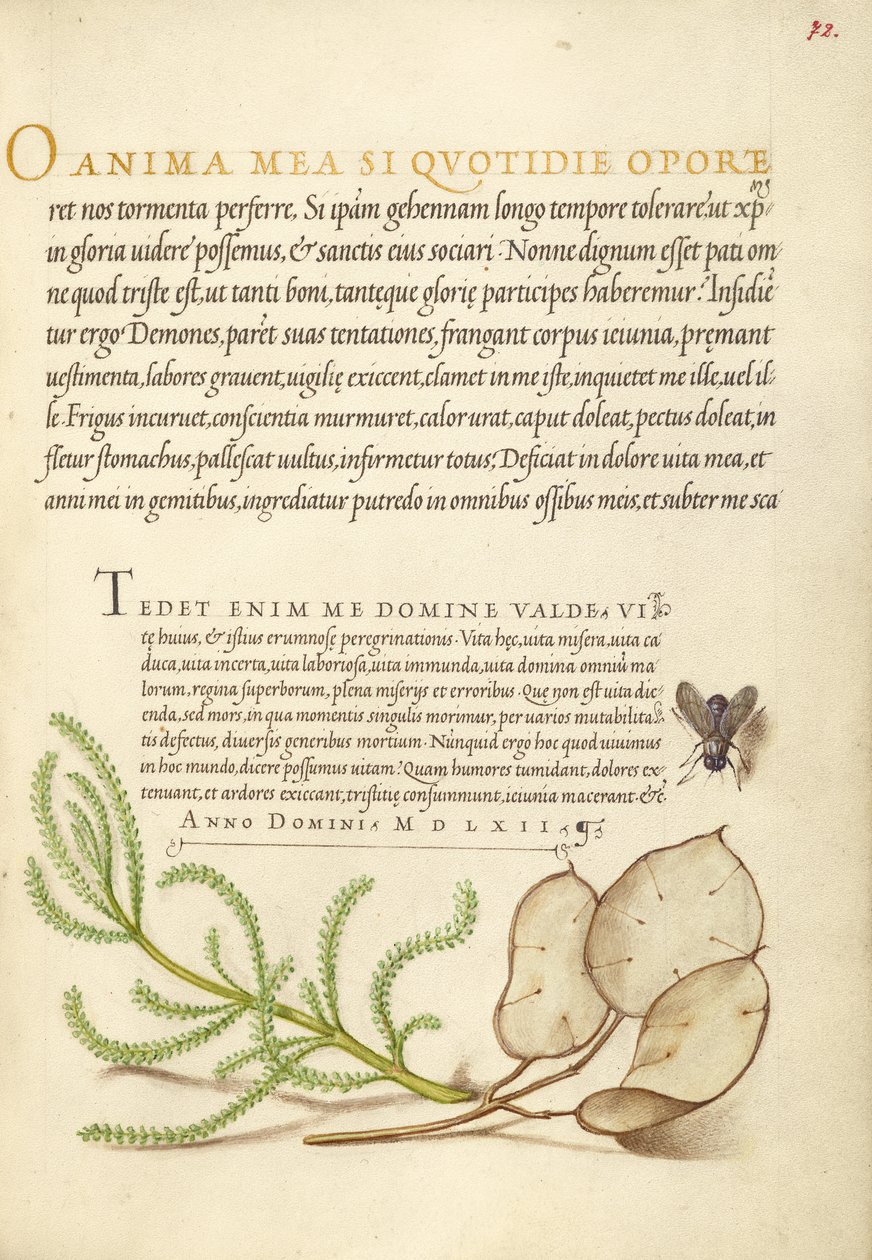 72.
O ANIMA MEA SI QVOTIDIE OPORTE
ret nos tormenta perferre, Si ipãm gehennam longo tempore tolerare, ut xp-
in gloria uidere possemus, & sanctis eius sociari. Nonne dignum esset pati om-
ne quod triste est, ut tanti boni, tantęque glorię participes haberemur? Insidiẽ
tur ergo Demones, parẽt suas tentationes, frangant corpus ieiunia, pręmant
uestimenta, labores grauent, uigilię exiccent, clamet in me iste, inquietet me ille, uel il-
le. Frigus incuruet, conscientia murmuret, calor urat, caput doleat, pectus doleat, in
fletur stomachus, pallescat uultus, infirmetur totus; Deficiat in dolore uita mea, et
anni mei in gemitibus, ingrediatur putredo in omnibus ossibus meis, et subter me sca
TEDET ENIM ME DOMINE VALDE, VI
tę huius, & istius erumnosę peregrinationis. Vita hęc, uita misera, uita ca
duca, uita incerta, uita laboriosa, uita immunda, uita domina omniũ ma
lorum, regina superborum, plena miserijs et erroribus. Quę non est uita dic-
enda, sed mors, in qua momentis singulis morimur, per varios mutabilita
tis defectus, diuersis generibus mortium. Nũnquid ergo hoc quod uiuimus
in hoc mundo, dicere possumus vitam? Quam humores tumidant, dolores ex-
tenuant, et ardores exiccant, tristitię consummunt, ieiunia macerant. &c.
ANNO DOMINI, M D L X I I,